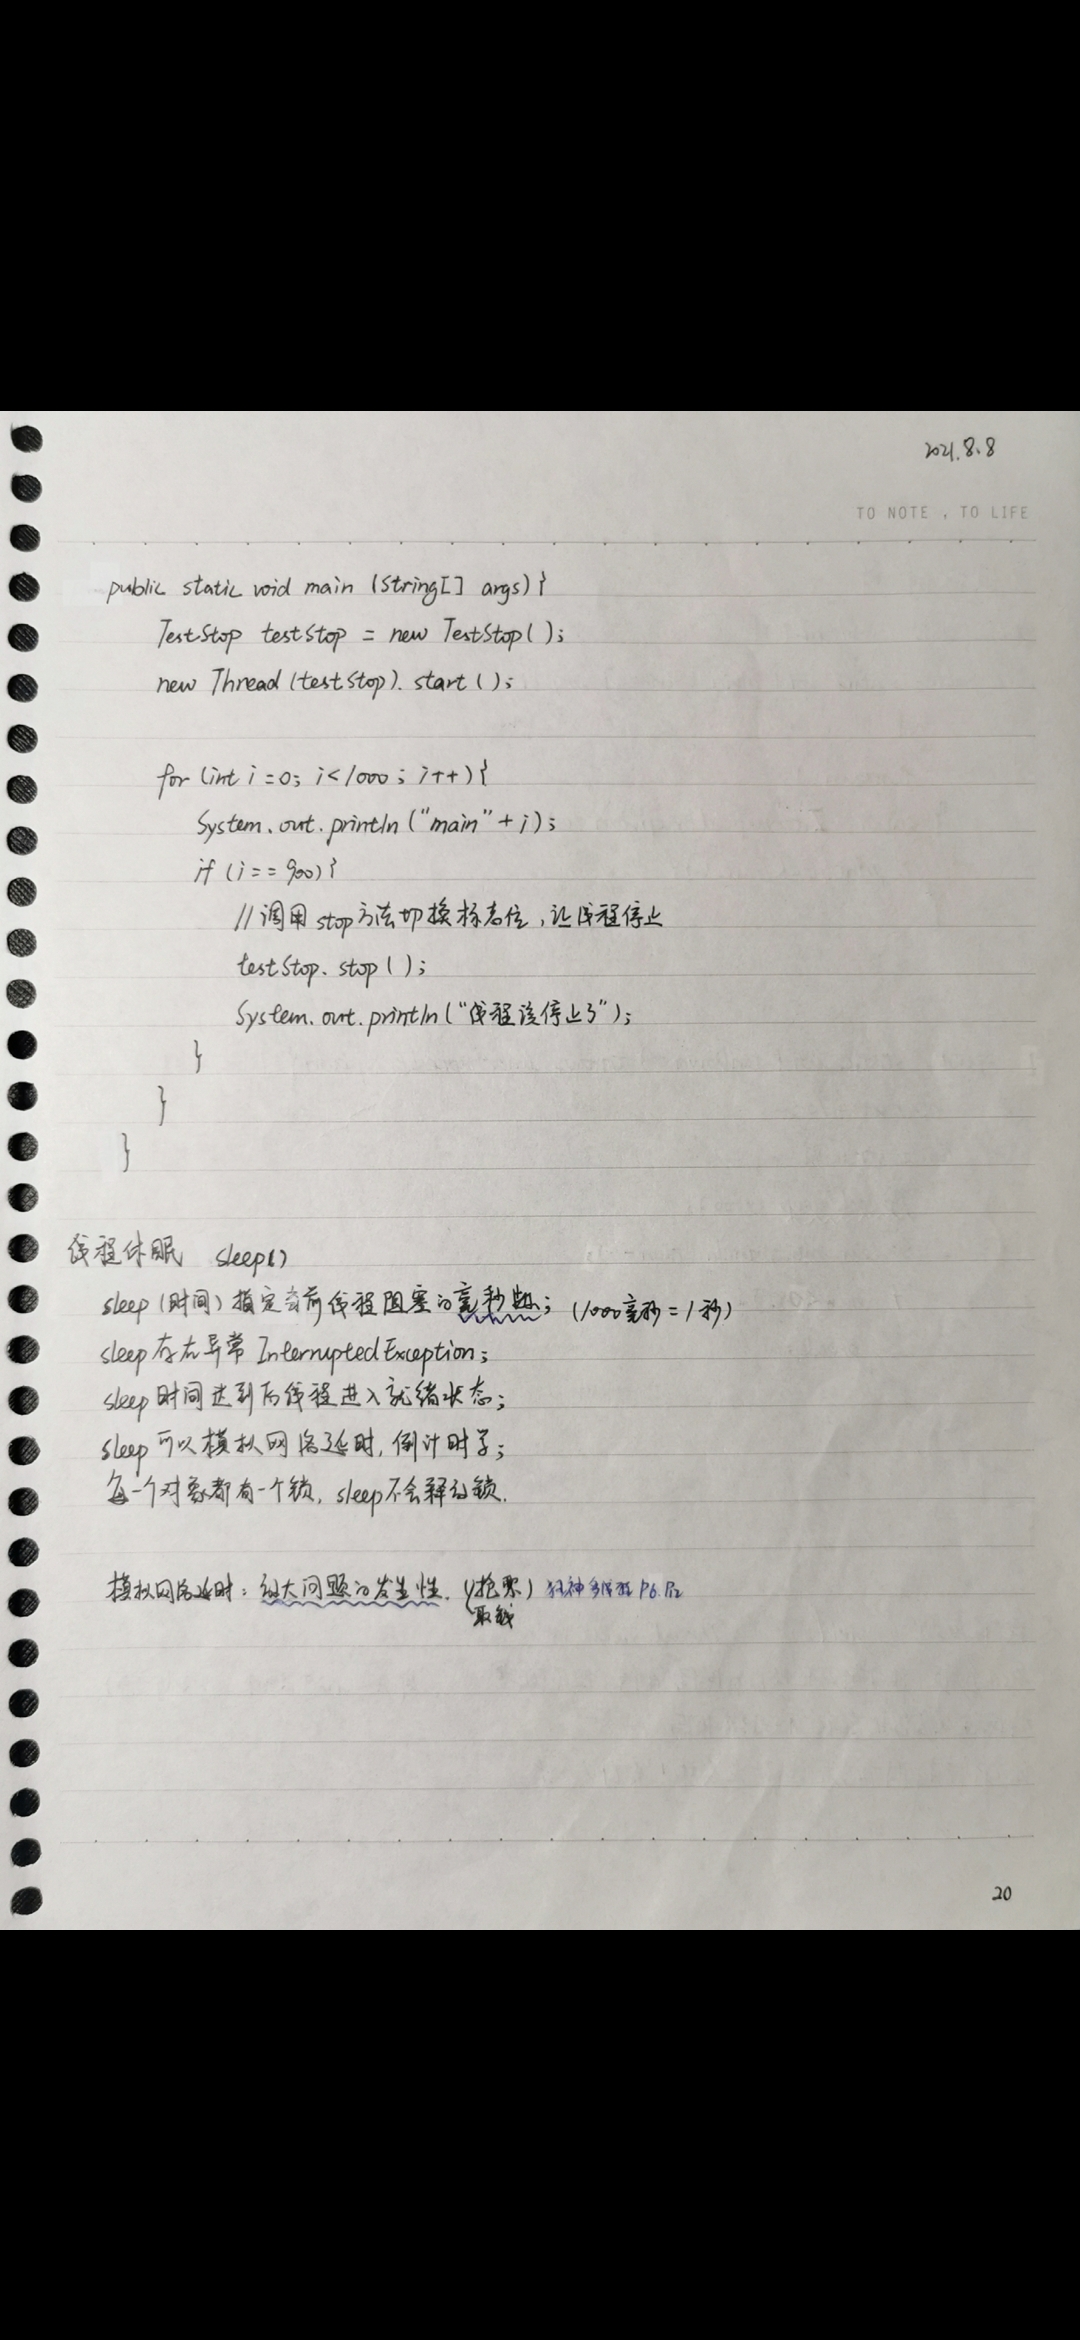 2021.8.8
TO NOTE , TO LIFE
public static void main (String[] args) {
TestStop testStop = new TestStop();
new Thread (testStop). start ();
for (int i = 0; i < 1000 ; i++) {
System.out.println ("main" + i);
if (i == 900) {
//调用 stop方法切换标志位,让线程停止
testStop. stop ();
System.out.println ("线程该停止了");
}
}
}
线程休眠 sleep()
sleep (时间) 指定当前线程阻塞的毫秒数; (1000毫秒 = 1秒)
sleep 存在异常 InterruptedException;
sleep 时间达到后线程进入就绪状态;
sleep 可以模拟网络延时,倒计时等;
每一个对象都有一个锁, sleep不会释放锁.
模拟网络延时: 放大问题的发生性. (抢票) 狂神多线程 P6.
取钱
20